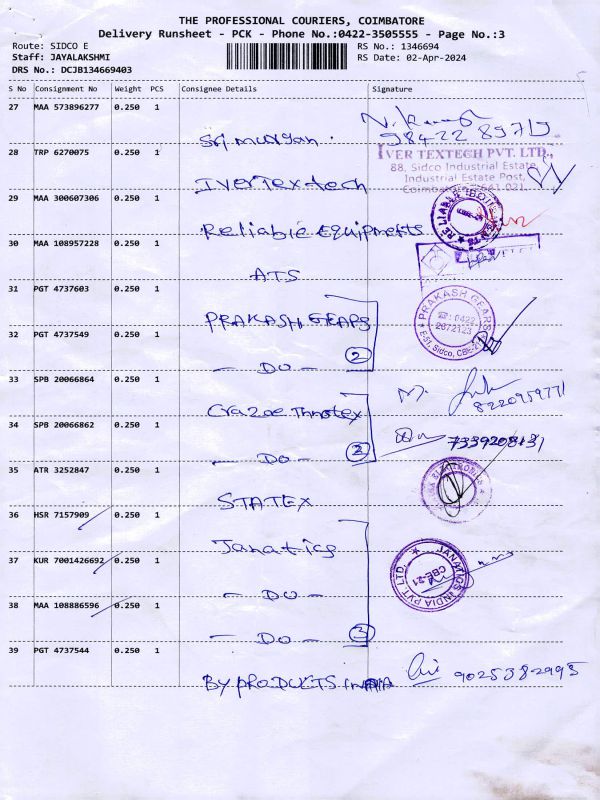 THE PROFESSIONAL COURIERS, COIMBATORE
Delivery Runsheet - PCK - Phone No.:0422-3505555 - Page No.:3
Route: SIDCO E
RS No.: 1346694
Staff: JAYALAKSHMI
RS Date: 02-Apr-2024
DRS No.: DCJB134669403
S No Consignment No Weight PCS Consignee Details Signature
27 MAA 573896277 0.250 1
Sri Murugan.
98422 89719
28 TRP 6270075 0.250 1
IVER TEXTECH PVT. LTD.,
88, Sidco Industrial Estate,
Industrial Estate Post,
Coimbatore - 641 021.
Iver Textech
29 MAA 300607306 0.250 1
Reliable Equipments
30 MAA 108957228 0.250 1
ATS
31 PGT 4737603 0.250 1
PRAKASH GEARS
PRAKASH GEARS
0422
2672123
E-51, Sidco, CBE-21
32 PGT 4737549 0.250 1
- DO - 2
33 SPB 20066864 0.250 1
8220959771
34 SPB 20066862 0.250 1
7339208131
- DO - 2
35 ATR 3252847 0.250 1
STATEX
36 HSR 7157909 0.250 1
Janatics
37 KUR 7001426692 0.250 1
JANATICS INDIA PVT LTD.
CBE-21
- DO -
38 MAA 108886596 0.250 1
- DO - 3
39 PGT 4737544 0.250 1
BY PRODUCTS INDIA
9025382995